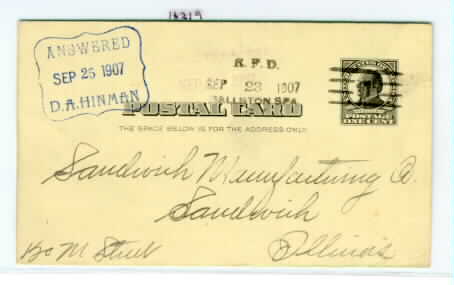 18319
ANSWERED
SEP 25 1907
D.A. HINMAN
R.F.D.
SEP 23 1907
POSTAL CARD
THE SPACE BELOW IS FOR THE ADDRESS ONLY.
POSTAGE
ONE CENT
Sandwich Manufacturing Co.
Sandwich
Illinois
M Street